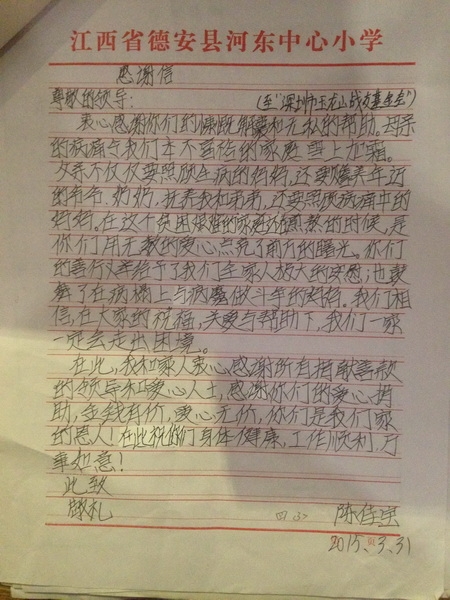 江西省德安县河东中心小学
感谢信
尊敬的领导:
衷心感谢你们的慷慨解囊和无私的帮助。母亲
的病痛令我们本不富裕的家庭雪上加霜。
父亲不仅仅要照顾生病的妈妈,还要赡养年迈
的爷爷、奶奶,抚养我和弟弟,还要照顾病痛中的
妈妈。在这个贫困艰难的家庭煎熬的时候,是
你们用无数的爱心点亮了前方的曙光。你们
的善行义举给予了我们全家人放大的安慰;也鼓
舞了在病榻上与病魔做斗争的妈妈。我们相
信,在大家的祝福,关爱与帮助下,我们一家
一定会走出困境。
在此,我和家人衷心感谢所有捐献善款
的领导和爱心人士,感谢你们的爱心捐
助,金钱有价,爱心无价,你们是我们家
的恩人!在此祝你们身体健康,工作顺利,万
事如意!
此致
敬礼
陈佳
2015、3、31